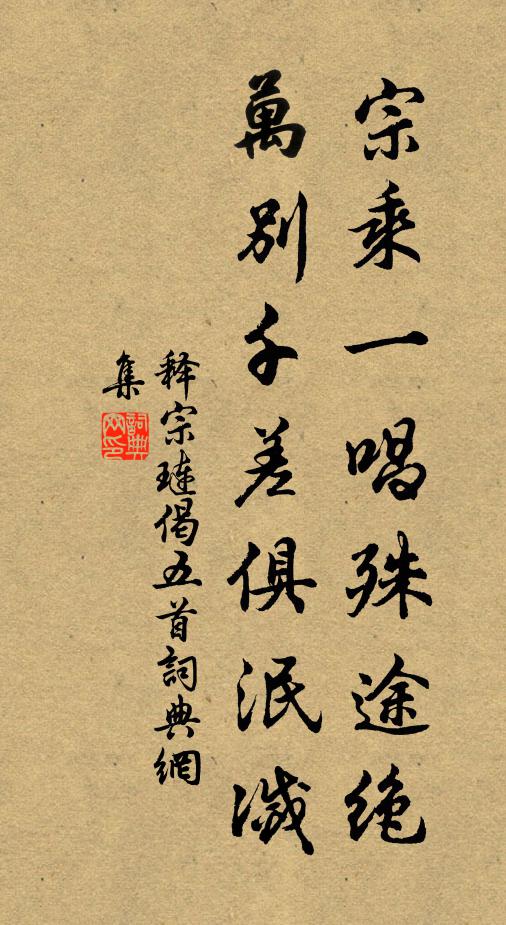 宗乘一唱殊途絶
萬別千差俱泯滅
释宗璉偈五首詞典網
集
詞典網印